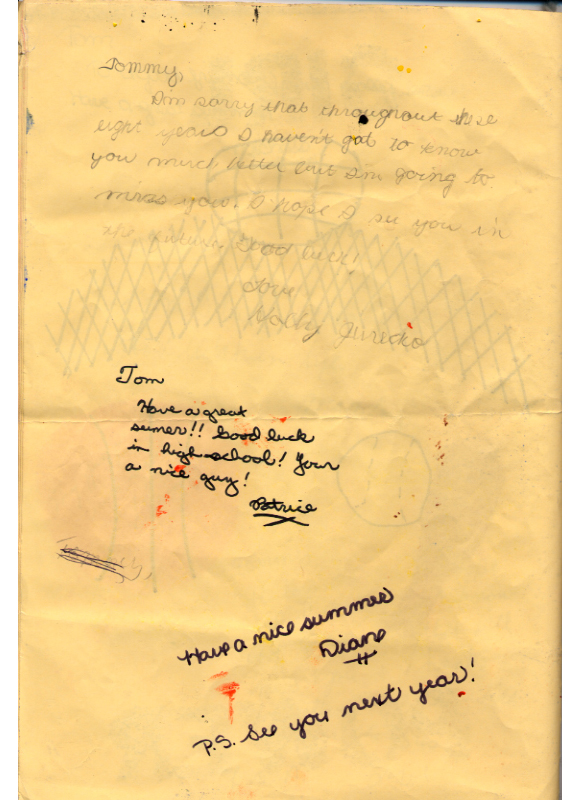 Tommy,
I'm sorry that throughout these
eight years I haven't got to know
you much better but I'm going to
miss you. I hope I see you in
the future. Good luck!
Love
Molly
Tom
Have a great
sumer!! Good luck
in high school! Your
a nice guy!
Patrice
Have a nice summer
Diane
P.S. See you next year!